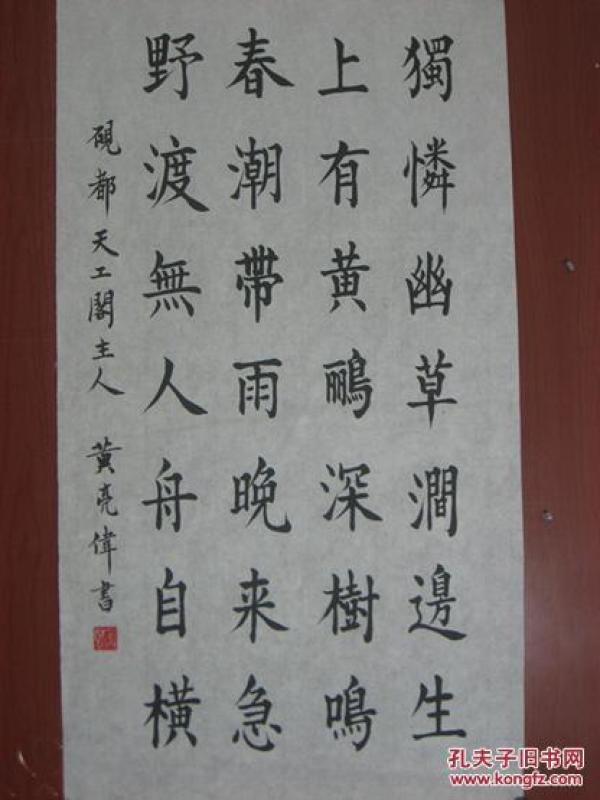 獨憐幽草澗邊生
上有黄鸝深樹鳴
春潮帶雨晚来急
野渡無人舟自橫
硯都天工閣主人 黄亮偉書
孔夫子旧书网
www.kongfz.com